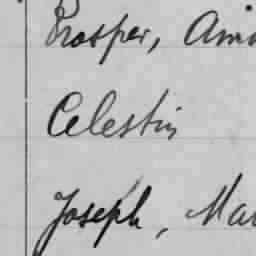 Prosper, Aim
Celestin
Joseph, Mar